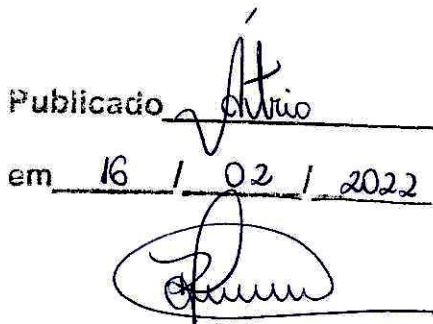 Publicado Átrio
em 16 / 02 / 2022